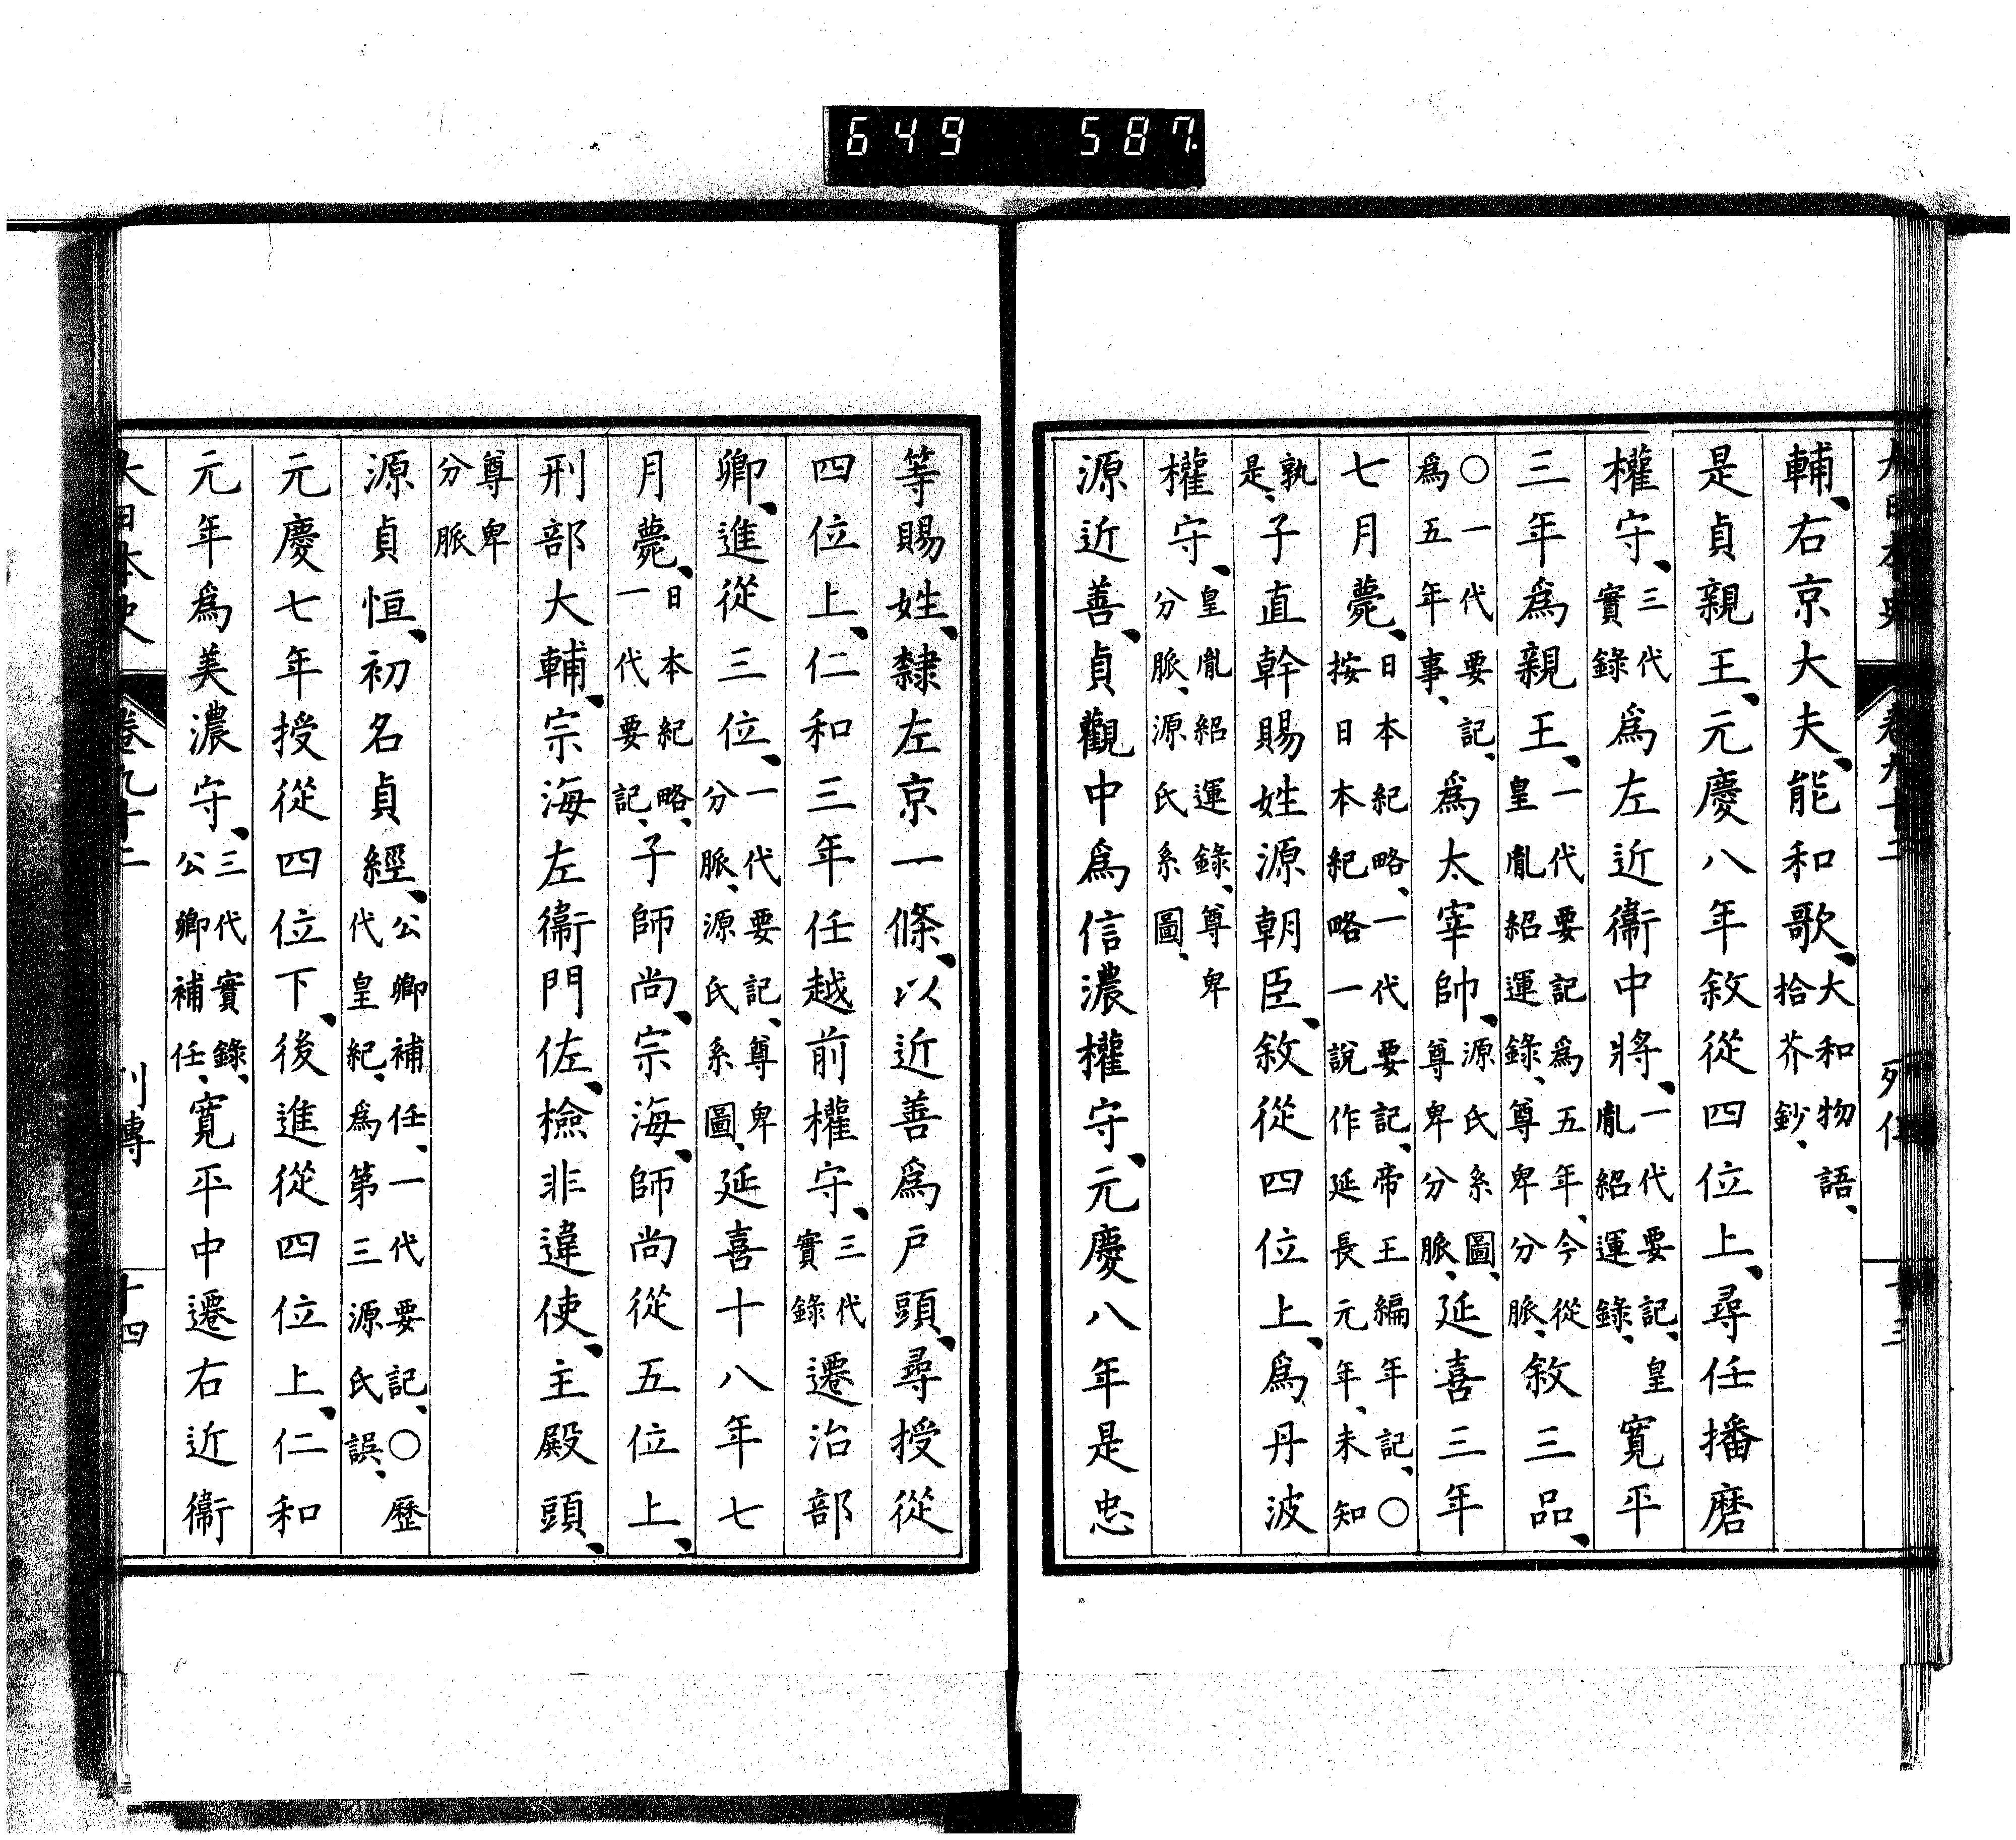 649 587.
大日本史 卷九十二 列傳 十三
輔、右京大夫、能和歌、大和物語、拾芥鈔、
是貞親王、元慶八年敘從四位上、尋任播磨
權守、三代實錄爲左近衞中將、一代要記、皇胤紹運錄、寬平
三年爲親王、一代要記爲五年、今從皇胤紹運錄、尊卑分脈、敘三品、
○一代要記、爲五年事、爲太宰帥、源氏系圖、尊卑分脈、延喜三年
七月薨、日本紀略、一代要記、帝王編年記、○按日本紀略一說作延長元年、未知
孰是、子直幹賜姓源朝臣、敘從四位上、爲丹波
權守、皇胤紹運錄、尊卑分脈、源氏系圖、
源近善、貞觀中爲信濃權守、元慶八年是忠
等賜姓、隸左京一條、以近善爲戶頭、尋授從
四位上、仁和三年任越前權守、三代實錄遷治部
卿、進從三位、一代要記、尊卑分脈、源氏系圖、延喜十八年七
月薨、日本紀略、一代要記、子師尚、宗海、師尚從五位上、
刑部大輔、宗海左衞門佐、檢非違使、主殿頭、
尊卑分脈
源貞恒、初名貞經、公卿補任、一代要記、○歷代皇紀、爲第三源氏誤、
元慶七年授從四位下、後進從四位上、仁和
元年爲美濃守、三代實錄、公卿補任、寬平中遷右近衞
大日本史 卷九十二 列傳 十四